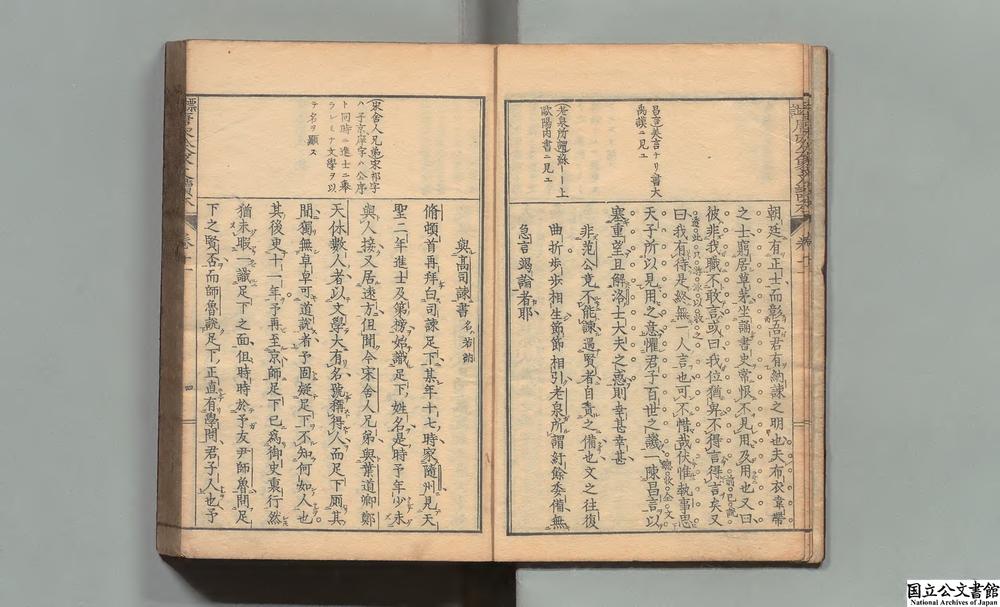 昌言美言ナリ書大
禹謨ニ見ユ
老泉所謂蘇――上
歐陽内書ニ見ユ
朝廷有正士而彰吾君有納諫之明也夫布衣韋帶
之士窮居草茅坐誦書史常恨不見用及用也又曰
彼非我職不敢言或曰我位猶卑不得言得言矣又
曰我有待是終無一人言也可不惜哉伏惟執事思
天子所以見用之意懼君子百世之譏一陳昌言以
塞重望且解洛士大夫之惑則幸甚幸甚
非范公竟不能諫過賢者自責之備也文之往復
曲折步步相生節節相引老泉所謂紆餘委備無
急言竭論者耶
宋舍人兄弟宋祁字
ハ子京庠字ハ公序
ト同時ニ進士ニ擧
ラレミナ文學ヲ以
テ名ヲ顯ス
與高司諫書 名若訥
脩頓首再拜白司諫足下某年十七時家隨州見天
聖二年進士及第榜始識足下姓名是時予年少未
與人接又居遠方但聞今宋舍人兄弟與葉道卿鄭
天休數人者以文學大有名號稱得人而足下厠其
間獨無卓卓可道說者予固疑足下不知何如人也
其後更十一年予再至京師足下已爲御史裏行然
猶未暇一識足下之面但時時於予友尹師魯問足
下之賢否而師魯說足下正直有學問君子人也予
四
国立公文書館
National Archives of Japan